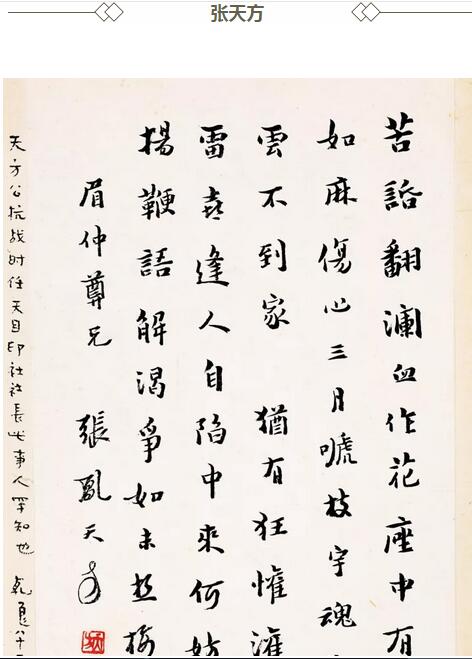 张天方
苦語翻瀾血作花座中有
如麻傷心三月嗁枝宇魂
雲不到家 猶有狂懽
雷喜逢人自陷中來何妨
揚鞭語解渴爭如未
眉仲尊兄 張天方
天方公抗战时任天目印社社长此事人罕知也